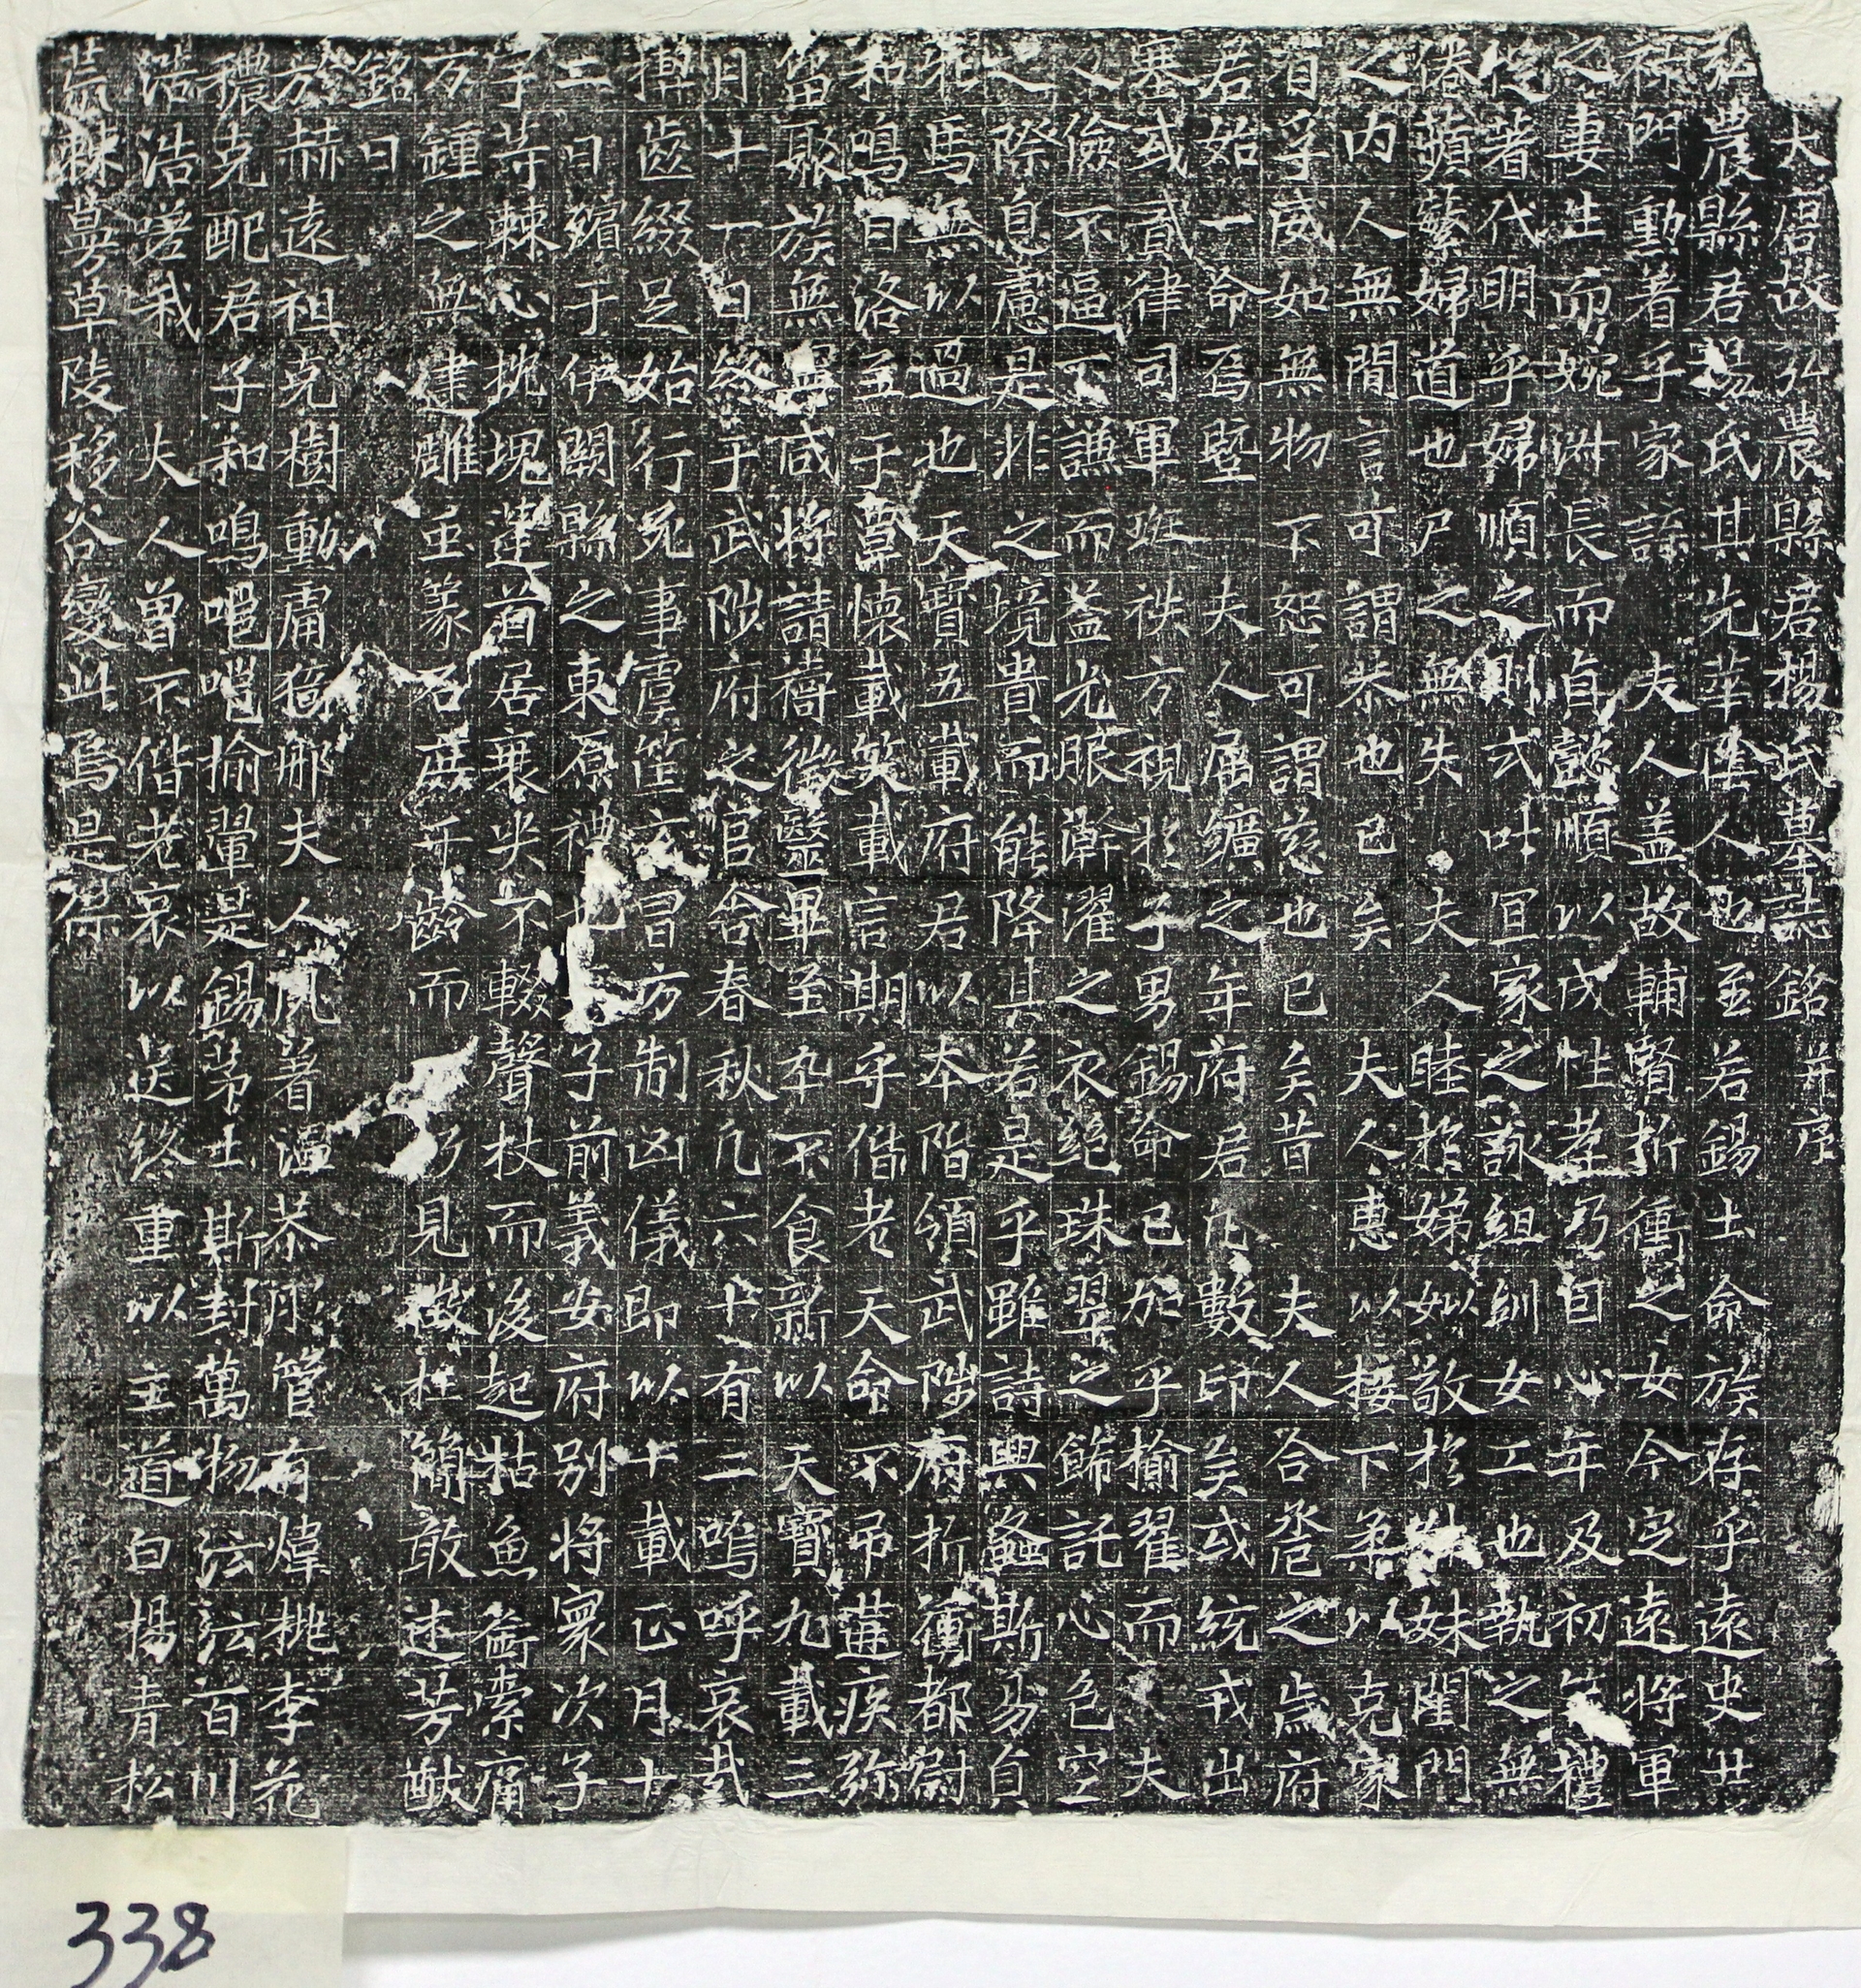 大唐故弘農縣君楊氏墓誌銘并序
弘農縣君楊氏其先華陰人也至若錫土命族存乎遠史廿
祿門動著乎家諜夫人盖故輔賢折衝之女今定遠將軍
之妻生而婉淋長而貞懿順以成性孝乃因心年及初笄禮
從著代明乎婦順之則式吐宜家之詠組紃女工也執之無
倦蘋蘩婦道也尸之無失夫人睦於娣姒敬於娰妹閨門
之內人無間言可謂恭也已矣夫人惠以接下柔以克家
自孚威如無物下恕可謂慈也已矣昔夫人合巹之歲府
君始一命焉暨夫人屬纊之年府君凡數印矣或統戎出
塞或貳律司軍班袟方視於子男錫命已於乎榆翟而夫
人儉不逼下謙而益光服澣濯之衣絕珠翠之飾託心色空
之際息慮是非之境貴而能降其若是乎雖詩興螽斯易貞
牝馬無以過也天寶五載府君以本階頌武陟府折衝都尉
和鳴曰洛至于覃懷載笑載言期乎偕老天命不弔遘疾弥
留聚族無㗖咸將請禱徵毉畢至卒不食新以天寶九載三
月十一日終于武陟府之官舍春秋凡六十有二嗚呼哀哉
揳齒綴足始行死事虞筐玄冒方制凶儀即以十載正月十
二日殯于伊闕縣之東原禮也子前義安府别將寰次子
子等棘心枕塊蓬首居喪哭不輟聲杖而後起枯魚銜索痛
万鍾之無逮雕玉篆石庶千齡而乃見徵杜簡敢述芳猷
銘曰
於赫遠祖克樹動庸猗那夫人夙著温恭彤管有煒桃李花
穠克配君子和鳴嗈嗈揄翬是錫茅土斯封萬物法法百川
浩浩嗟我大人曾不偕老哀以送終重以主道白楊青松
荒棘蔓草陵移谷變此焉是葆